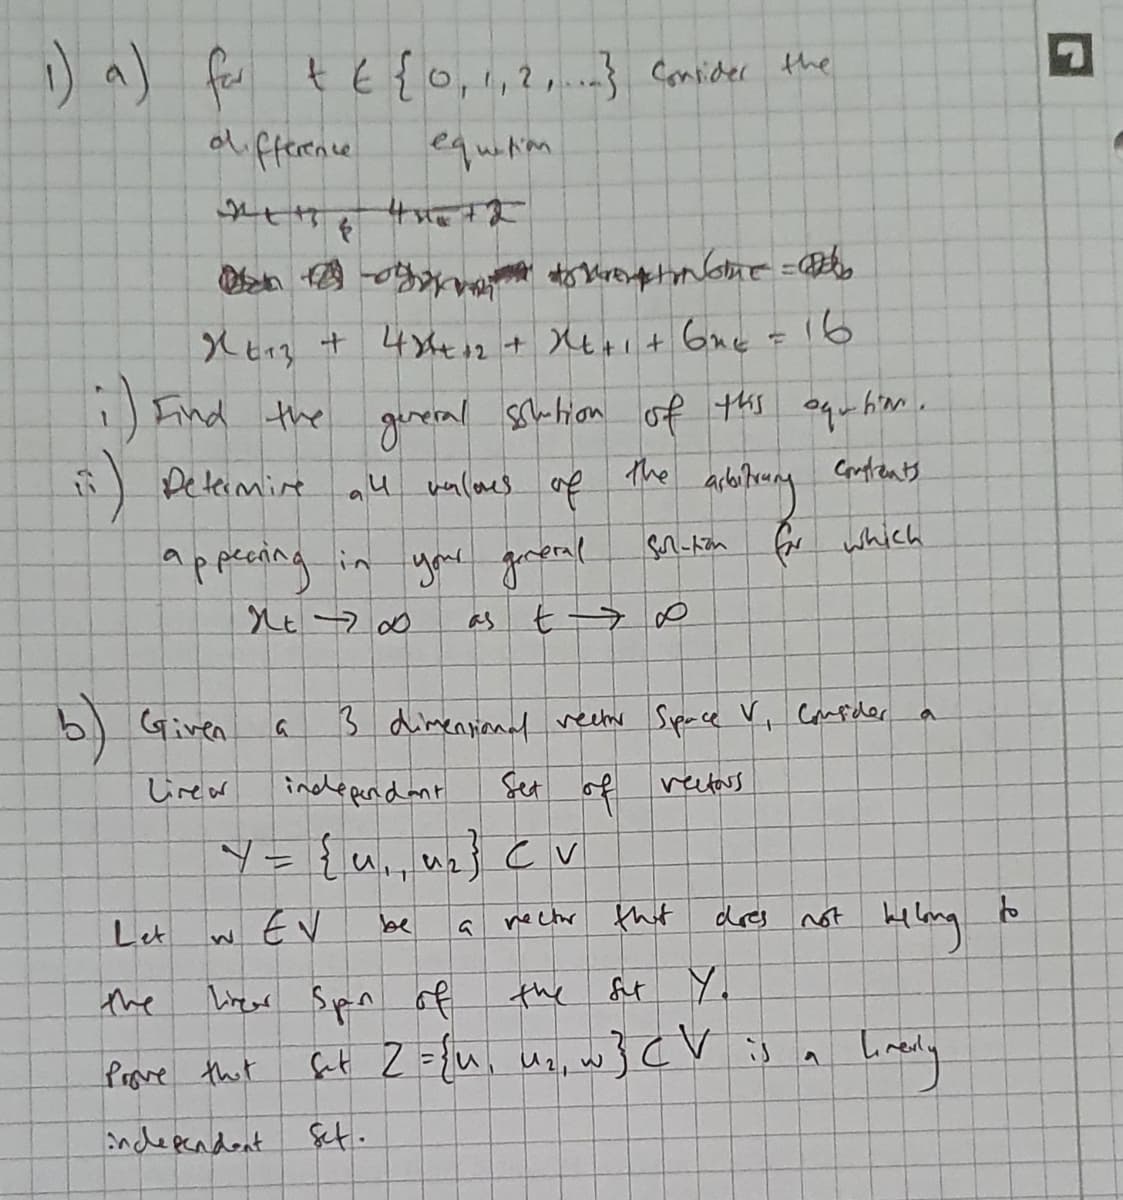 1) a) for t ∈ {0, 1, 2, ...} Consider the
difference equation
x_{t+3} 4x +2
x_{t+3} + 4x_{t+2} + x_{t+1} + 6x_t = 16
i) Find the general solution of this equation.
ii) Determine all values of the arbitrary constants
appearing in your general solution for which
x_t → ∞ as t → ∞
b) Given a 3 dimensional vector space V, consider a
linear independant set of vectors
Y = {u_1, u_2} ⊂ V
Let w ∈ V be a vector that does not belong to
the linear span of the set Y.
Prove that set Z = {u_1 u_2, w} ⊂ V is a linearly
independent set.